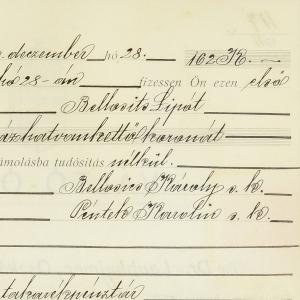 deczember hó 28. 162 K.
hó 28-án fizessen Ön ezen első
Bellosits Lipót
százhatvankettő koronát
számolásba tudósítás nélkül.
Bellosics Károly s. k.
Péntek Karolin s. k.
takarékpénztár